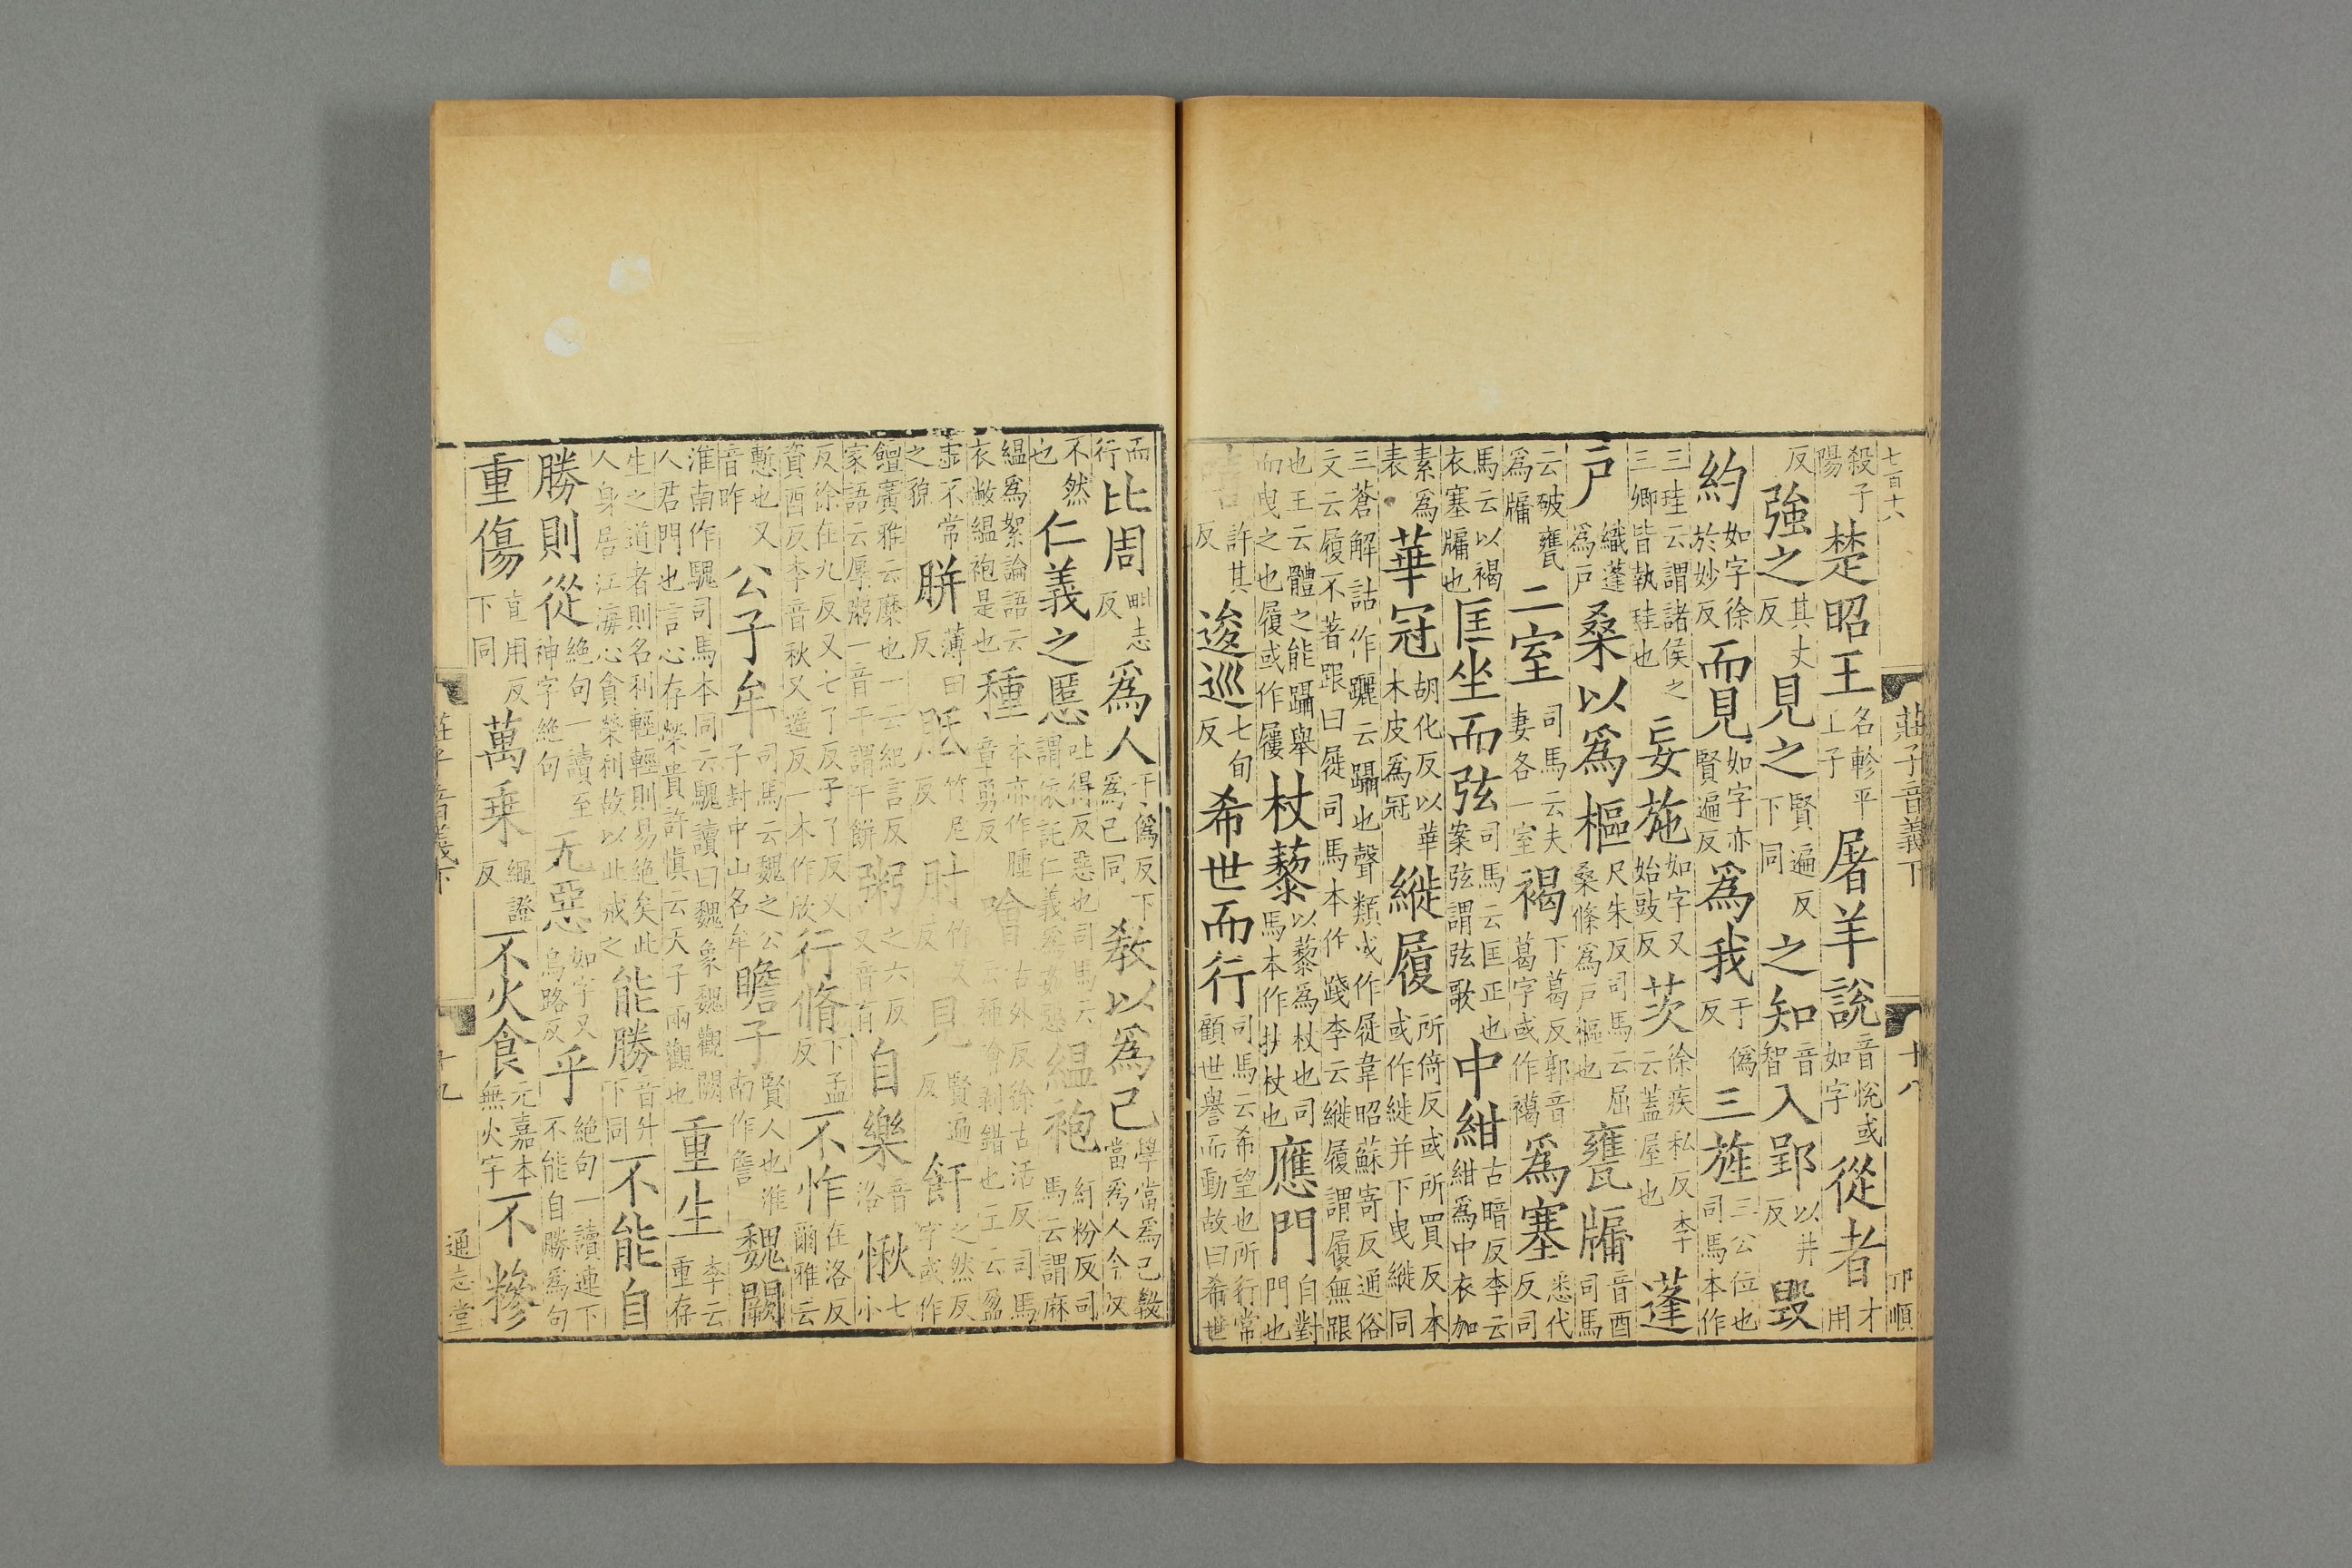 七百十八 莊子音義下 十八 卭順
殺子陽 楚昭王 名軫平王子 屠羊說 音悅或如字 從者 才用
反 強之 其丈反 見之 賢遍反下同 之知 音智 入郢 以井反 毀
約 如字徐於妙反 而見 如字亦賢遍反 爲我 于僞反 三旌 三公位也司馬本作
三珪云謂諸侯之三卿皆執珪也 妄施 如字又始豉反 茨 徐疾私反李云蓋屋也 蓬
戶 織蓬爲戶 桑以爲樞 尺朱反司馬云屈桑條爲戶樞也 甕牖 音酉司馬
云破甕爲牖 二室 司馬云夫妻各一室 褐 下葛反郭音葛字或作褐 爲塞 悉代反司
馬云以褐衣塞牖也 匡坐而弦 司馬云匡正也案弦謂弦歌 中紺 古暗反李云紺爲中衣加
素爲表 華冠 胡化反以華木皮爲冠 縰履 所倚反或所買反本或作縰并下曳縰同
三蒼解詁作躧云躡也聲類或作屣韋昭蘇寄反通俗文云履不著跟曰屣司馬本作踐李云縰履謂履無跟
也王云體之能躡舉而曳之也履或作屨 杖藜 以藜爲杖也司馬本作扶杖也 應門 自對門也
許其反 逡巡 七旬反 希世而行 司馬云希望也所行常顧世譽而動故曰希世
而行 比周 毗志反 爲人 于僞反下爲己同 敎以爲己 學當爲己敎當爲人今反
不然也 仁義之慝 吐得反惡也司馬云謂依託仁義爲姦惡 縕袍 紆粉反司馬云謂麻
縕爲絮論語云衣敝縕袍是也 種 本亦作腫章勇反 噲 古外反徐古活反司馬云種噲剥錯也王云盈
虛不常之貌 胼 薄田反 胝 竹尼反 肘 竹久反 見 賢遍反 飦 之然反字或作
饘廣雅云糜也一云紀言反家語云厚粥一音干謂干餅 粥 之六反又音育 自樂 音洛 愀 七小
反徐在九反又七了反子了反又資酉反李音秋又遥反一本作欣 行脩 下孟反 不怍 在洛反爾雅云
慙也又音昨 公子牟 司馬云魏之公子封中山名牟 瞻子 賢人也淮南作詹 魏闕
淮南作魏司馬本同云巍讀曰魏象魏觀闕人君門也言心存榮貴許愼云天子兩觀也 重生 李云重存
生之道者則名利輕輕則易絕矣此人身居江海心貪榮利故以此戒之 能勝 音升下同 不能自
勝則從 絕句一讀至神字絕句 无惡 如字又烏路反 乎 絕句一讀連下不能自勝爲句
重傷 直用反下同 萬乘 繩證反 不火食 元嘉本無火字 不糝
莊子音義下 十九 通志堂